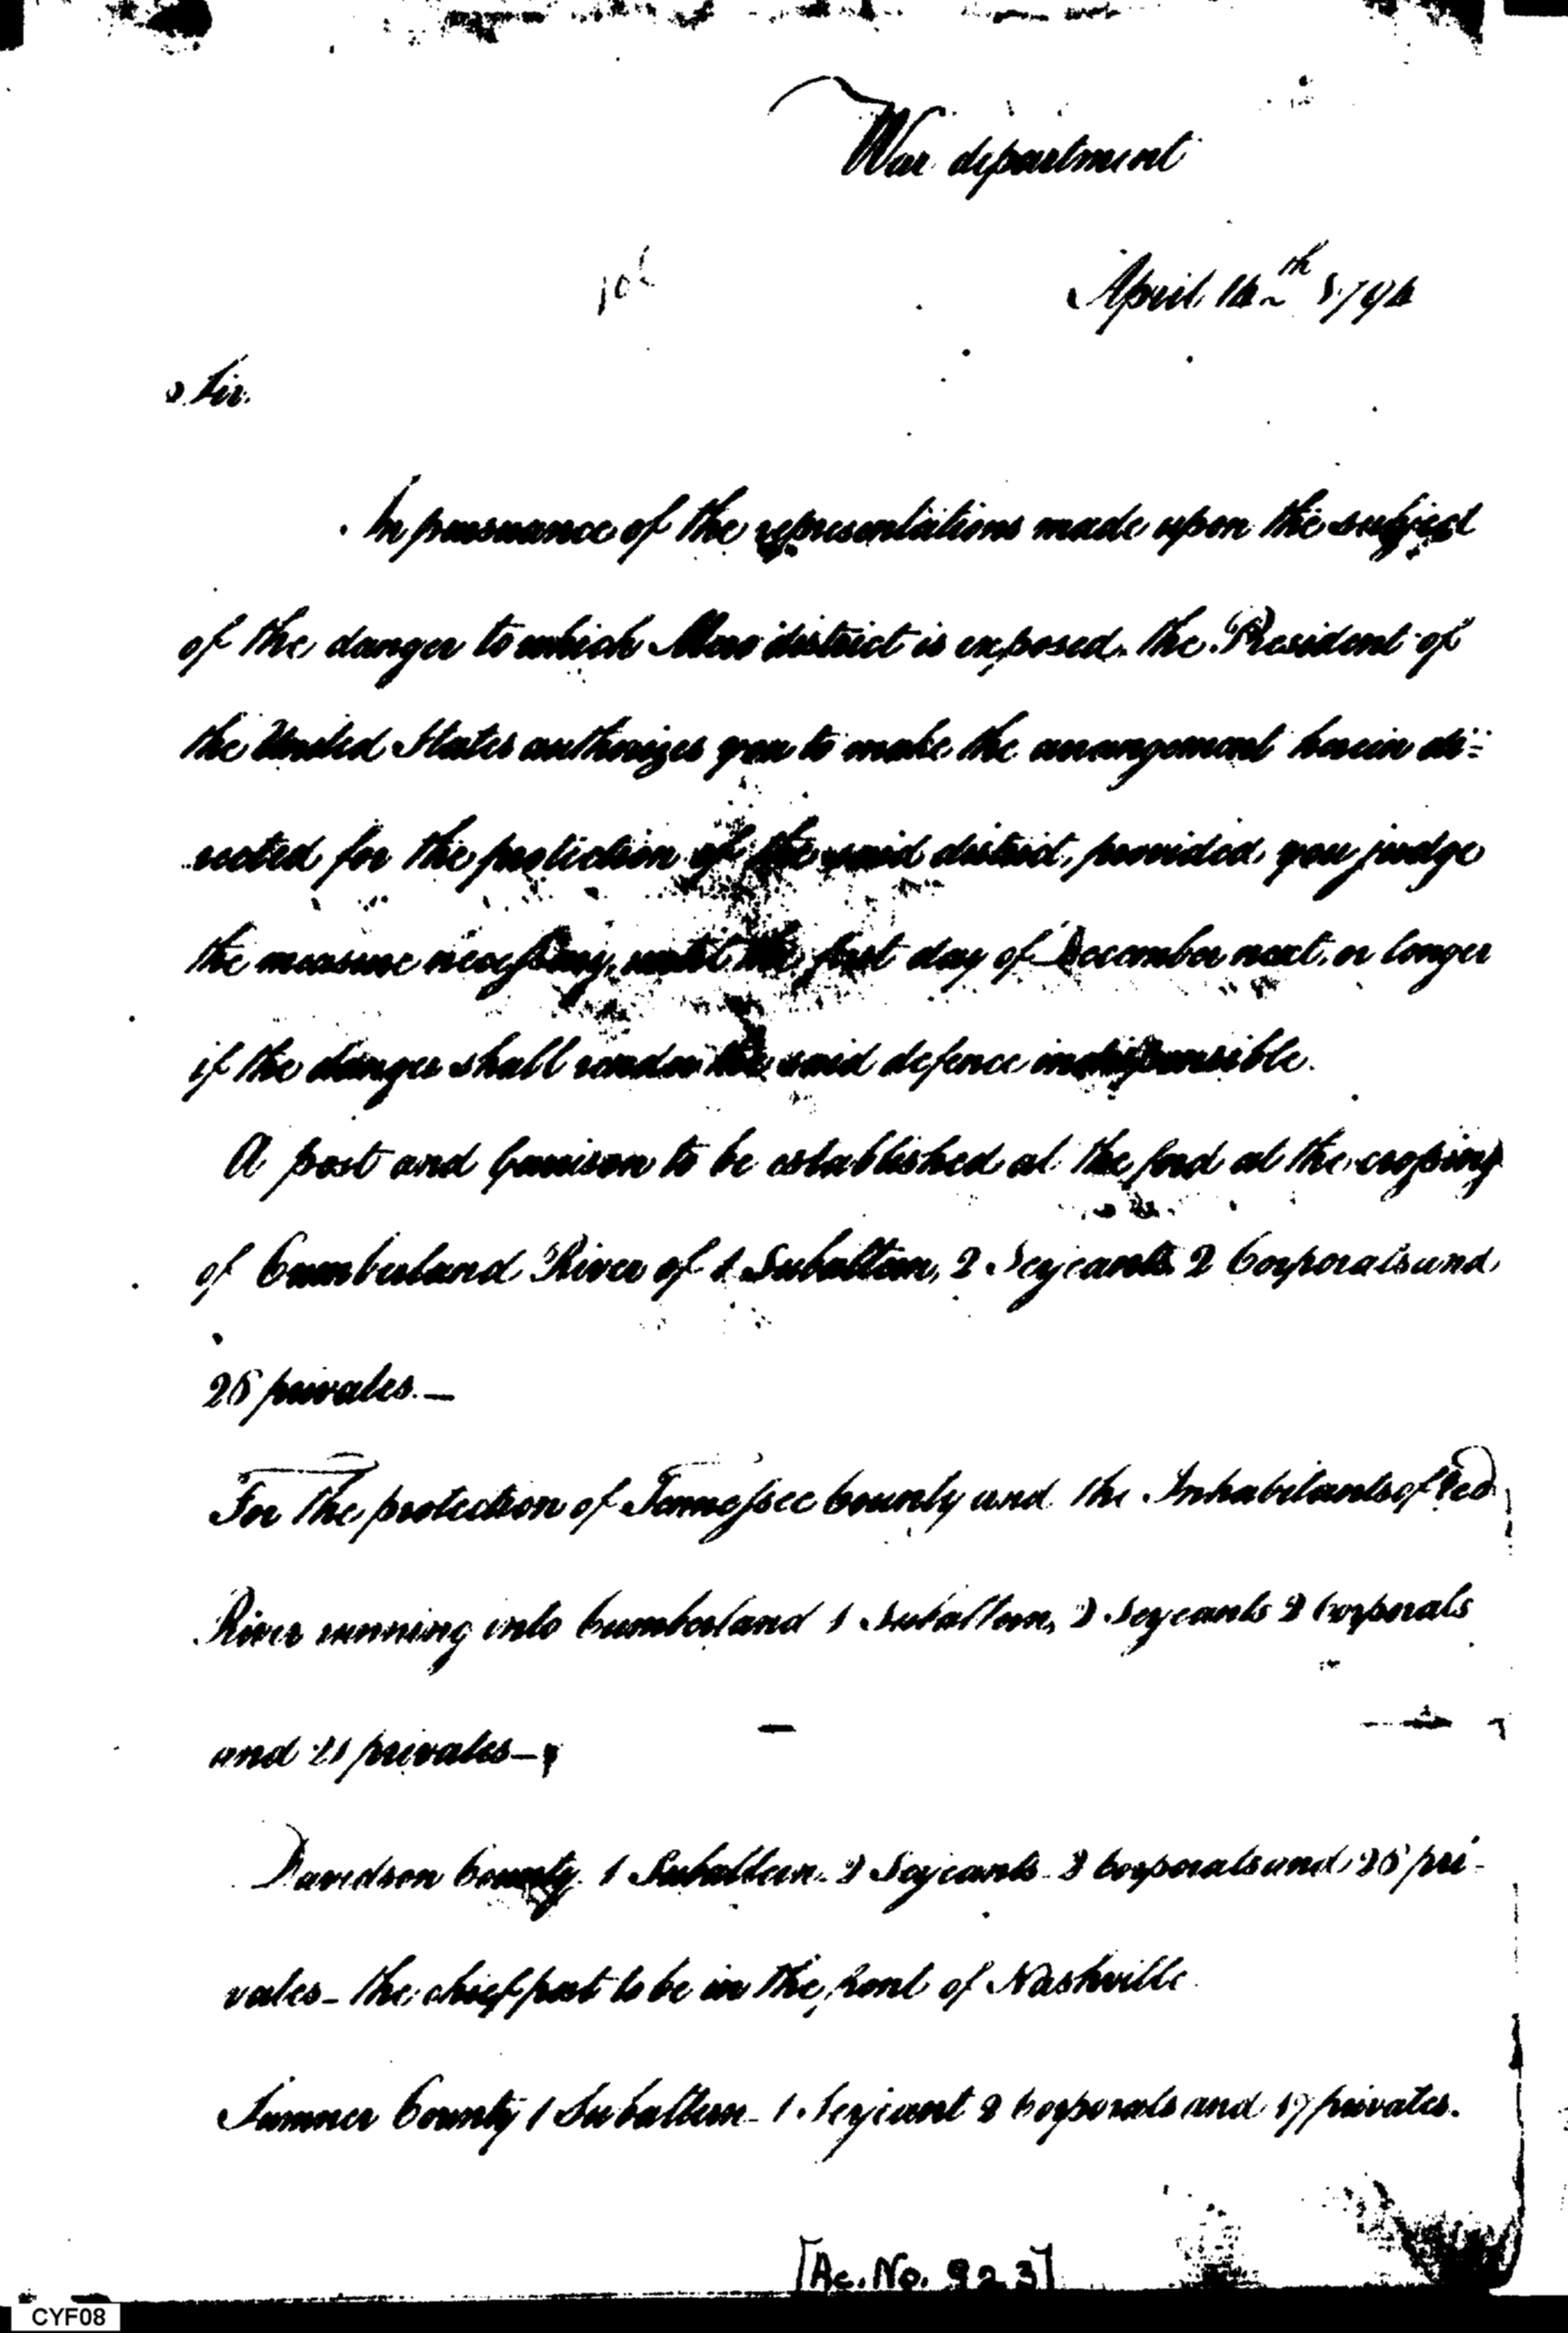 War department
April 14th 1794
Sir.
In pursuance of the representations made upon the subject
of the danger to which Mero district is exposed, the President of
the United States authorizes you to make the arrangement herein di=
rected for the protection of the said district, provided, you judge
the measure necessary, until the first day of December next, or longer
if the danger shall render the said defence indispensible.
A post and Garrison to be established at the ford at the crossing
of Cumberland River of 1 Subaltern, 2 Serjeants 2 Corporals and
25 privates.—
For the protection of Tennessee County and the Inhabitants of Red
River running into Cumberland 1 Subaltern, 2 Serjeants 2 Corporals
and 21 privates—
Davidson County 1 Subaltern. 2 Serjeants 2 Corporals and 25 pri-
vates – the chief part to be in the front of Nashville.
Sumner County 1 Subaltern – 1 Serjeant 2 Corporals and 17 privates.
[Ac. No. 923]
CYF08